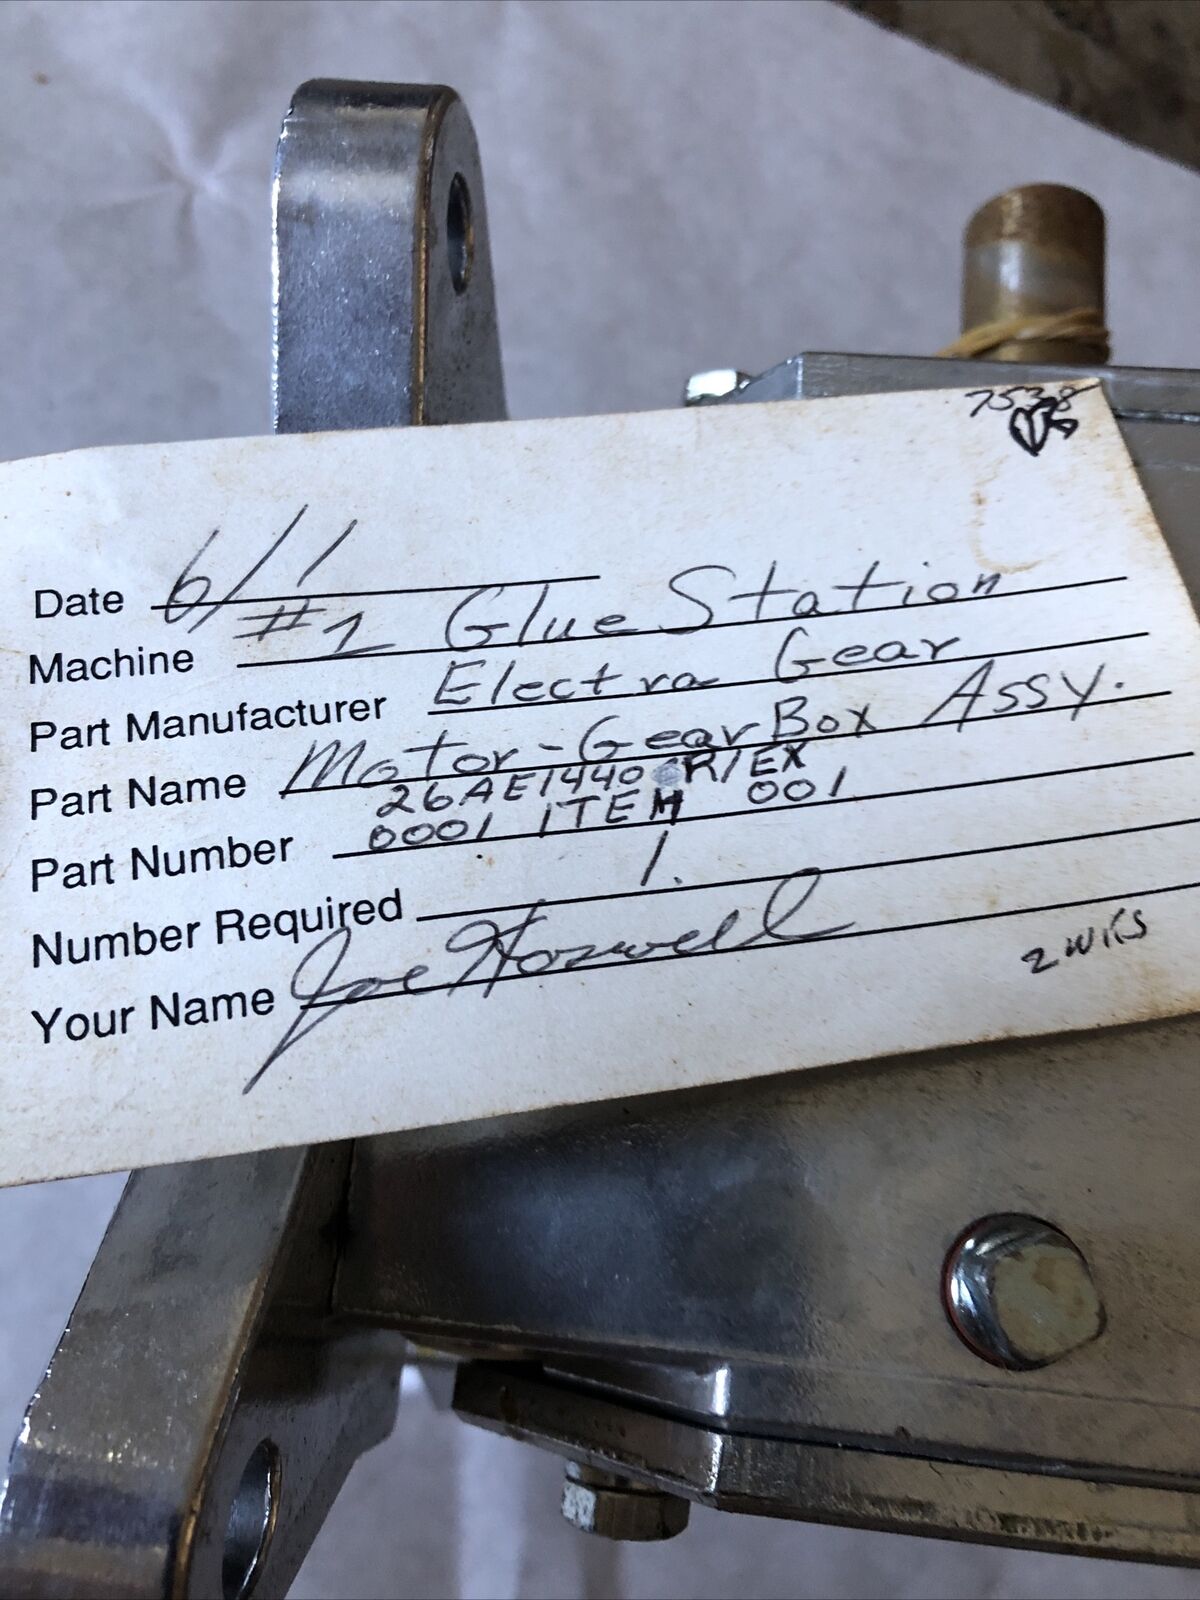 7538
Date 6/1
Machine #1 Glue Station
Part Manufacturer Electra Gear
Part Name Motor-Gear Box Assy.
26AE1440 R/EX
Part Number 0001 ITEM 001
Number Required 1.
Your Name Joe Hoswell
2 WKS